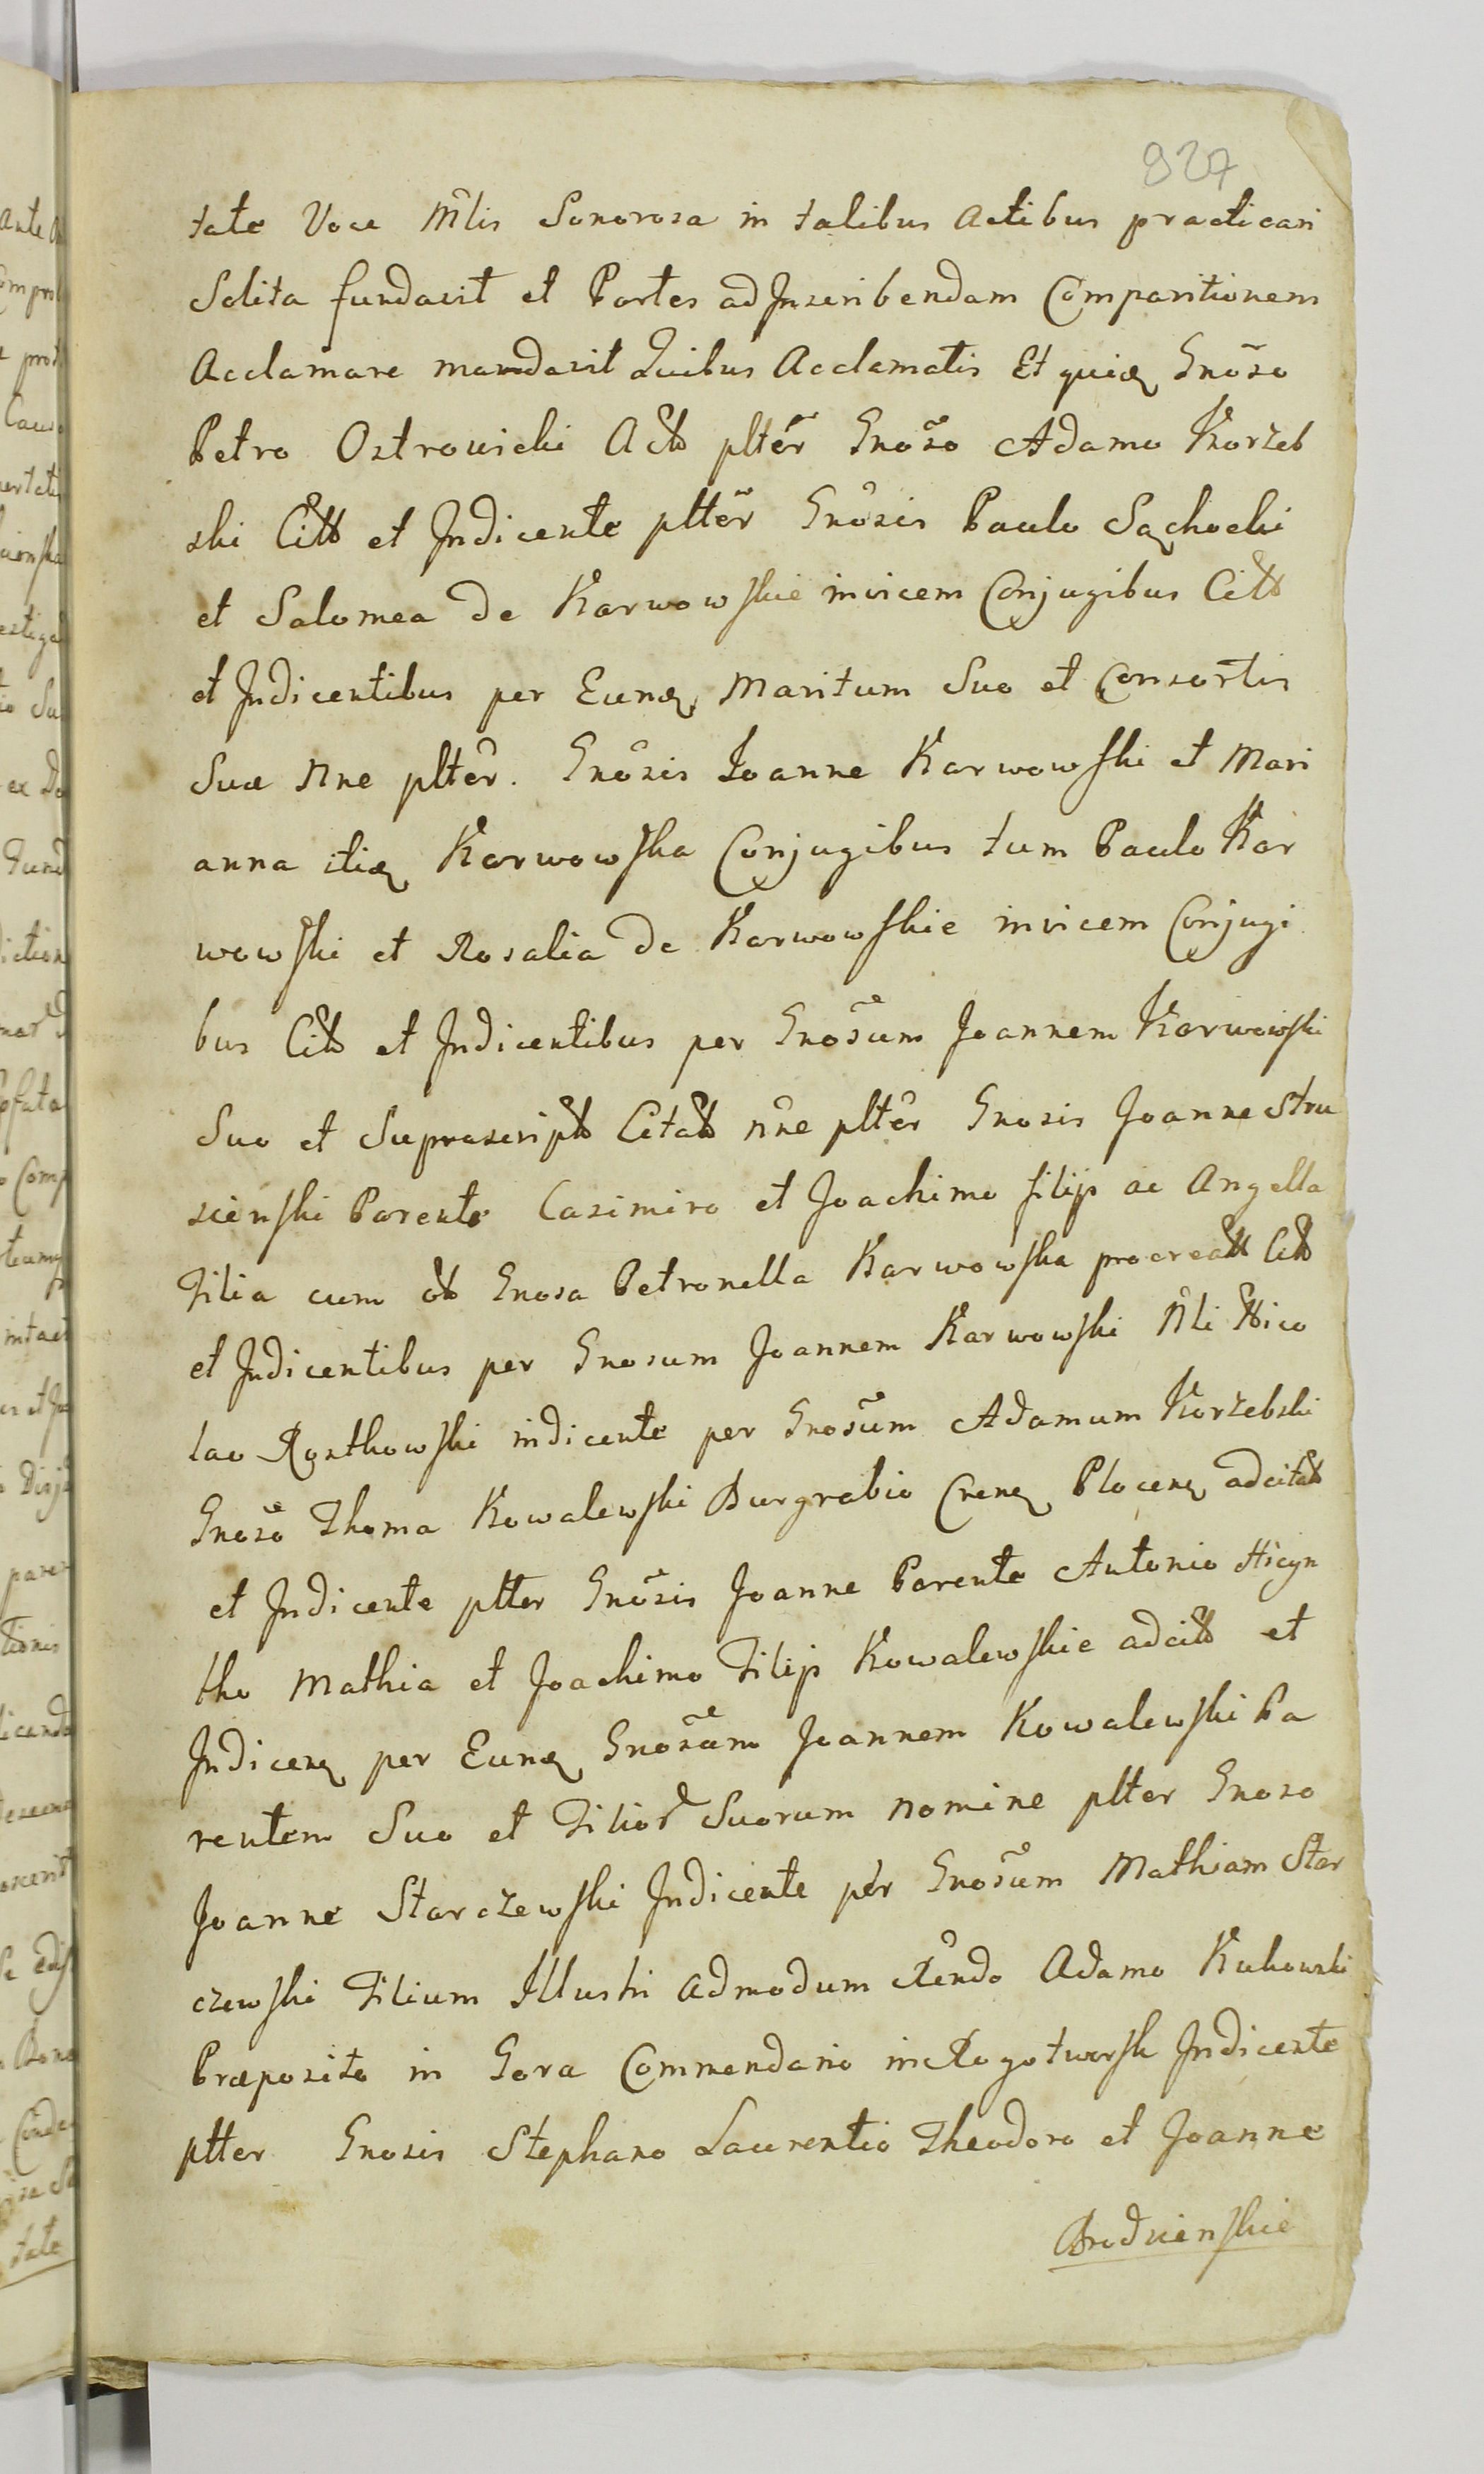 927
tate Voce Mlis Sonorosa in talibus Actibus practicari
Solita fundavit et Partes ad Inscribendam Comparitionem
Acclamare mandavit Quibus Acclamatis Et quia Gnoso
Petro Ostrowicki Actt pltër Gnoso Adamo Korzeb
ski Citt et Indicente pltër Gnosis Paulo Sąchocki
et Salomea de Karwowskie invicem Conjugibus Citt
et Indicentibus per Eunq Maritum Suo et Consortis
Suæ Nne pltër. Gnosis Joanne Karwowski et Mari
anna itiq Karwowska Conjugibus tum Paulo Kar
wowski et Rosalia de Karwowskie invicem Conjugi
bus Citt et Indicentibus per Gnosum Joannem Karwowski
Suo et Suprascriptt Citatt nne pltër Gnosis Joanne Stru
sienski Parente Casimiro et Joachimo filijs ac Angella
Filia cum ott Gnosa Petronella Karwowska procreatt Citt
et Indicentibus per Gnosum Joannem Karwowski Nli Nico
lao Rostkowski indicente per Gnosum Adamum Korzebski
Gnoso Thoma Kowalewski Burgrabio Crenq Plocenq adcitatt
et Indicente pltër Gnosis Joanne Parente Antonio Hicyn
tho Mathia et Joachimo Filijs Kowalewskie adcitt et
Indicenq per Eunq Gnosum Joannem Kowalewski Pa
rentem Suo et Filior Suorum nomine pltër Gnoso
Joanne Starczewski Indicente per Gnosum Mathiam Star
czewski Filium Illustri Admodum Rendo Adamo Kukowski
Præposito in Gora Commendario in Rogotworsk Indicente
pltër Gnosis Stephano Laurentio Theodoro et Joanne
Brodzienskie